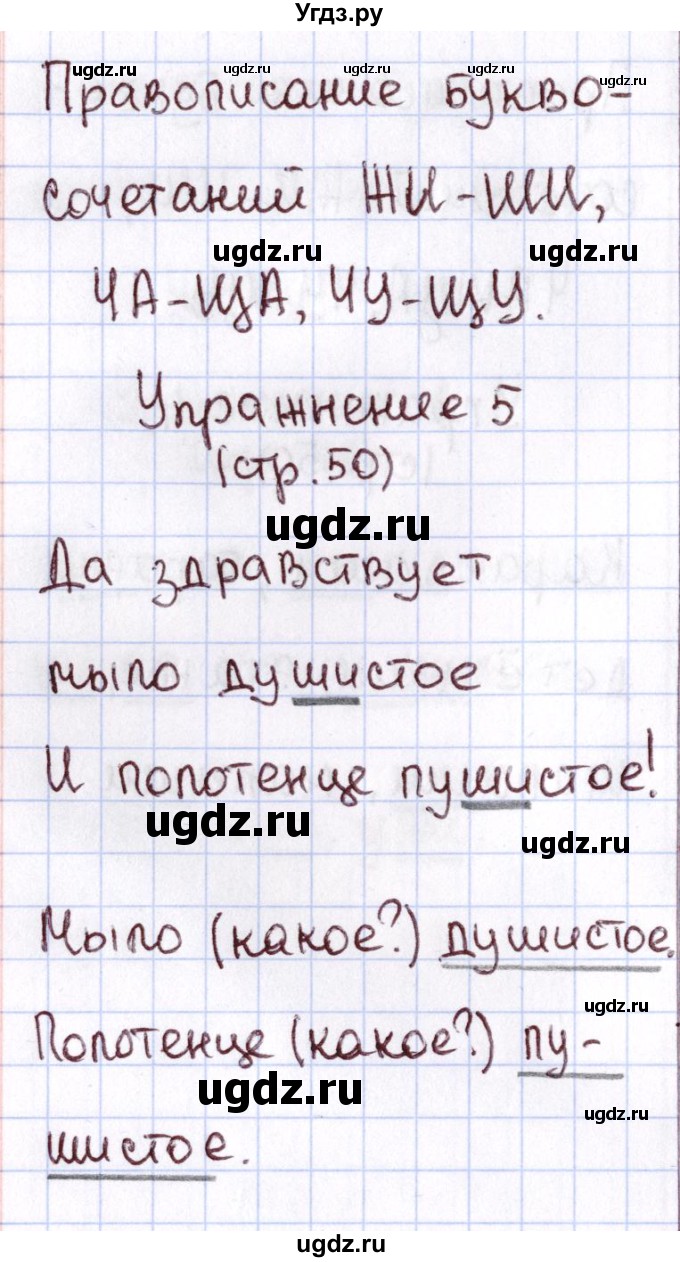 Угдз.ру
ugdz.ru ugdz.ru ugdz.ru ugdz.ru
Правописание букво-
сочетаний ЖИ-ШИ,
ugdz.ru ugdz.ru
ЧА-ЩА, ЧУ-ЩУ.
Упражнение 5
(стр.50)
ugdz.ru
Да здравствует
мыло душистое
И полотенце пушистое!
ugdz.ru
ugdz.ru
Мыло (какое?) душистое.
ugdz.ru
Полотенце (какое?) пу-
ugdz.ru
ugdz.ru
шистое.
ugdz.ru